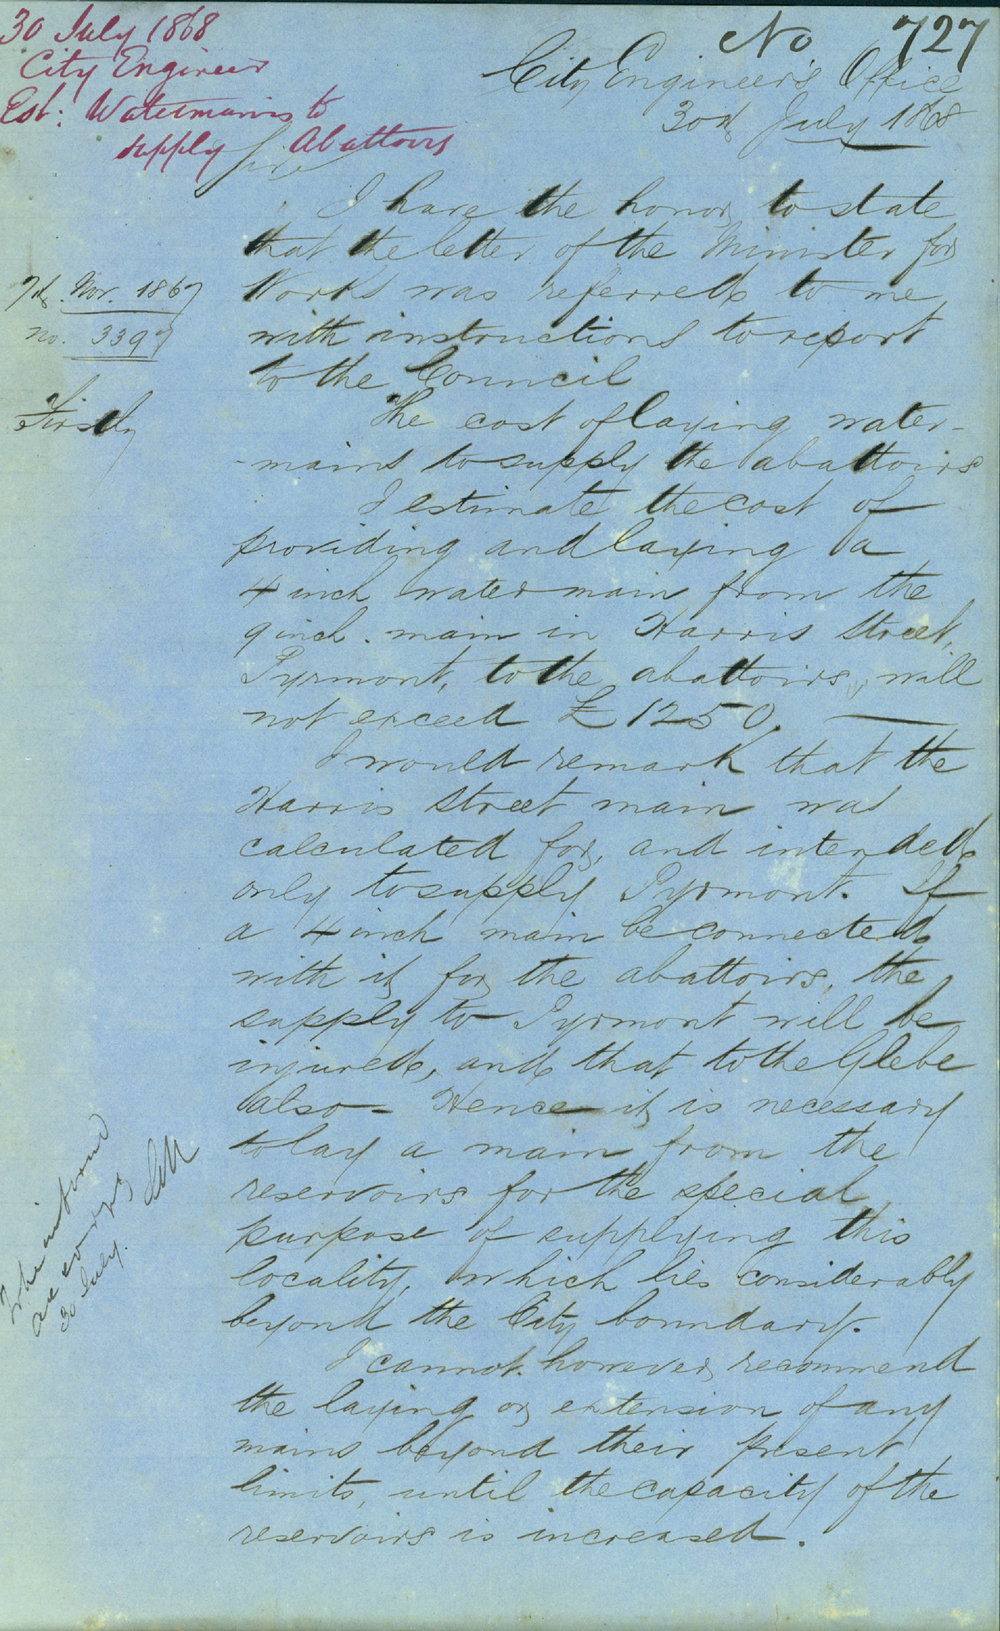 30 July 1868
City Engineer
Est: Watermains to
supply Abattoirs
No 727
City Engineer's Office
30th July 1868
Sir
I have the honor to state
that the letter of the Minister for
Works was referred to me
with instructions to report
to the Council
7th. Nov. 1867
no. 3397
Firstly
The cost of laying water-
-mains to supply the abattoirs
I estimate the cost of
providing and laying a
4 inch water main from the
9 inch. main in Harris Street,
Pyrmont, to the abattoirs, will
not exceed £1250.
I would remark that the
Harris Street main was
calculated for, and intended
only to supply Pyrmont. If
a 4 inch main be connected
with it for the abattoirs, the
supply to Pyrmont will be
injured, and that to the Glebe
also - Hence it is necessary
to lay a main from the
reservoirs for the special
purpose of supplying this
locality, which lies considerably
beyond the City boundary.
I cannot however, recommend
the laying or extension of any
mains beyond their present
limits, until the capacity of the
reservoirs is increased.
30 July.